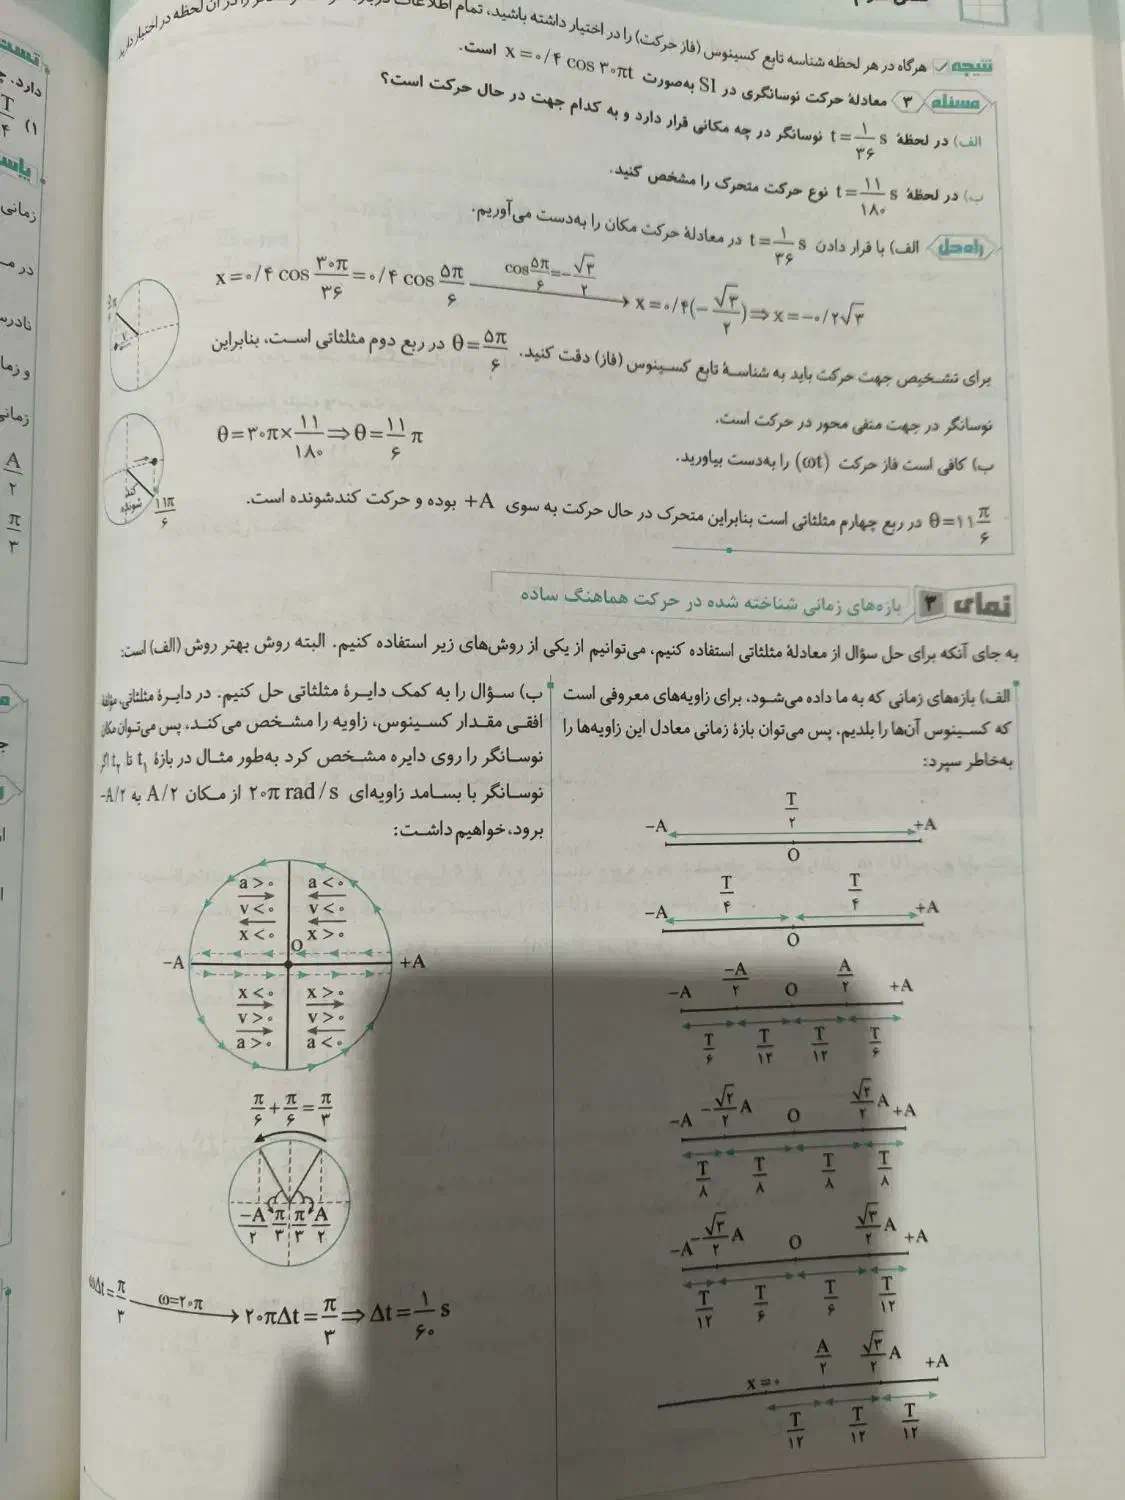 نتیجه هرگاه در هر لحظه شناسه تابع کسینوس (فاز حرکت) را در اختیار داشته باشید، تمام اطلاعات
را در آن لحظه در اختیار دارید
مسئله ۳ معادلهٔ حرکت نوسانگری در SI به‌صورت x=۰/۴ cos ۳۰πt است.
الف) در لحظهٔ t=۱/۳۶ s نوسانگر در چه مکانی قرار دارد و به کدام جهت در حال حرکت است؟
ب) در لحظهٔ t=۱۱/۱۸۰ s نوع حرکت متحرک را مشخص کنید.
راه‌حل الف) با قرار دادن t=۱/۳۶ s در معادلهٔ حرکت مکان را به‌دست می‌آوریم.
x=۰/۴ cos ۳۰π/۳۶ =۰/۴ cos ۵π/۶ cos ۵π/۶=-√۳/۲ → x=۰/۴(-√۳/۲)⇒x=-۰/۲√۳
برای تشخیص جهت حرکت باید به شناسهٔ تابع کسینوس (فاز) دقت کنید. θ=۵π/۶ در ربع دوم مثلثاتی است، بنابراین
نوسانگر در جهت منفی محور در حرکت است.
ب) کافی است فاز حرکت (ωt) را به‌دست بیاورید.
θ=۳۰π×۱۱/۱۸۰⇒θ=۱۱/۶ π
θ=۱۱π/۶ در ربع چهارم مثلثاتی است بنابراین متحرک در حال حرکت به سوی +A بوده و حرکت کندشونده است.
کند
شونده
۱۱π/۶
نمای ۳ بازه‌های زمانی شناخته شده در حرکت هماهنگ ساده
به جای آنکه برای حل سؤال از معادلهٔ مثلثاتی استفاده کنیم، می‌توانیم از یکی از روش‌های زیر استفاده کنیم. البته روش بهتر روش (الف) است:
الف) بازه‌های زمانی که به ما داده می‌شود، برای زاویه‌های معروفی است
که کسینوس آن‌ها را بلدیم، پس می‌توان بازهٔ زمانی معادل این زاویه‌ها را
به‌خاطر سپرد:
T/۲
-A O +A
T/۴ T/۴
-A O +A
-A -A/۲ O A/۲ +A
T/۶ T/۱۲ T/۱۲ T/۶
-A -√۲/۲ A O √۲/۲ A +A
T/۸ T/۸ T/۸ T/۸
-A -√۳/۲ A O √۳/۲ A +A
T/۱۲ T/۶ T/۶ T/۱۲
x=۰ A/۲ √۳/۲ A +A
T/۱۲ T/۱۲ T/۱۲
ب) سؤال را به کمک دایرهٔ مثلثاتی حل کنیم. در دایرهٔ مثلثاتی، مؤلفهٔ
افقی مقدار کسینوس، زاویه را مشخص می‌کند، پس می‌توان مکان
نوسانگر را روی دایره مشخص کرد به‌طور مثال در بازهٔ t۱ تا t۲ اگر
نوسانگر با بسامد زاویه‌ای ۲۰π rad/s از مکان A/۲ به -A/۲
برود، خواهیم داشت:
a>۰ a<۰
v<۰ v<۰
x<۰ x>۰
-A O +A
x<۰ x>۰
v>۰ v>۰
a>۰ a<۰
π/۶+π/۶=π/۳
-A/۲ π/۳ π/۳ A/۲
ωΔt=π/۳ ω=۲۰π → ۲۰πΔt=π/۳⇒Δt=۱/۶۰ s
دارد. چ
۱) T/۴
زمانی
نادرس
و زما
زمانی
A/۲
π/۳